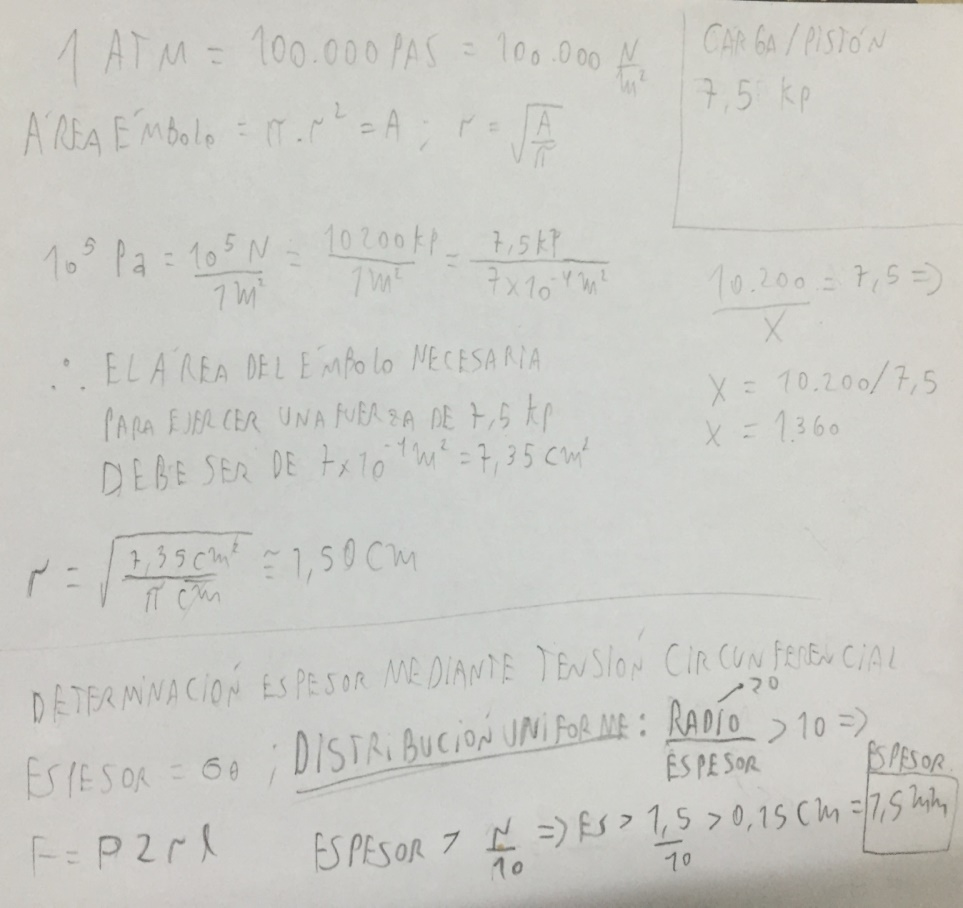 1 ATM = 100.000 PAS = 100.000 N/m²
CARGA/PISTÓN
7,5 kp
ÁREA ÉMBOLO = π.r² = A ; r = √(A/π)
10⁵ Pa = 10⁵ N/1 m² = 10200 kp/1 m² = 7,5 kP/7x10⁻⁴ m²
10.200/X = 7,5 =>
X = 10.200/7,5
X = 1.360
∴ EL ÁREA DEL ÉMBOLO NECESARIA
PARA EJERCER UNA FUERZA DE 7,5 kp
DEBE SER DE 7x10⁻⁴ m² = 7,35 cm²
r = √(7,35 cm²/π cm) ≅ 1,50 cm
DETERMINACIÓN ESPESOR MEDIANTE TENSIÓN CIRCUNFERENCIAL
ESPESOR = σθ ; DISTRIBUCIÓN UNIFORME: RADÍO/ESPESOR > 10 =>
20
F = P 2 r l
ESPESOR > r/10 => ES > 1,5/10 > 0,15 cm = 1,5 mm
ESPESOR